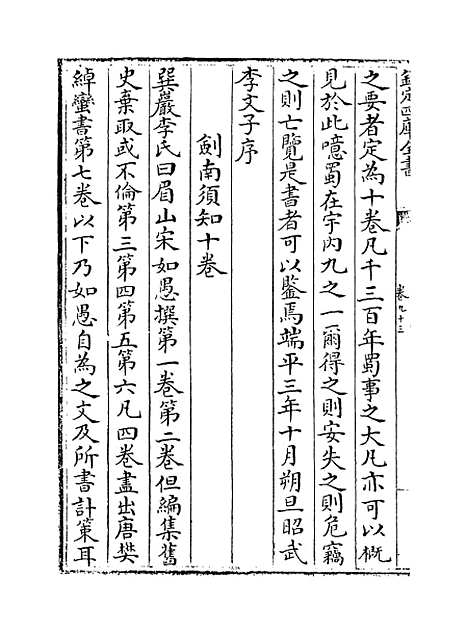 欽定四庫全書
卷九十三
之要者定為十卷凡千三百年蜀事之大凡亦可以概
見於此噫蜀在宇內九之一爾得之則安失之則危竊
之則亡覽是書者可以鑒焉端平三年十月朔旦昭武
李文子序
劍南須知十卷
巽巖李氏曰眉山宋如愚撰第一卷第二卷但編集舊
史棄取或不倫第三第四第五第六凡四卷盡出唐樊
綽蠻書第七卷以下乃如愚自為之文及所書計策耳